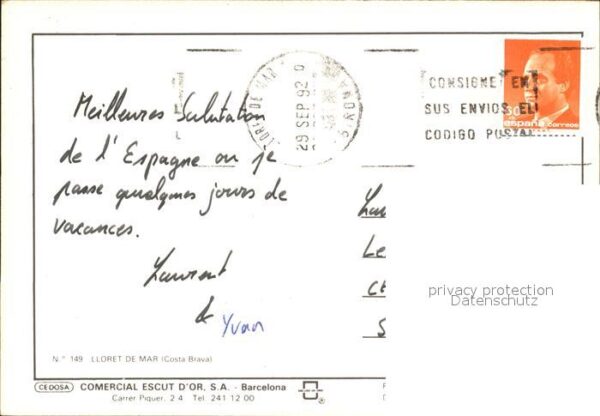 LORET DE MAR
29 SEP. 92
CONSIGNE EN
SUS ENVIOS EL
CODIGO POSTAL
30
españa correos
Meilleures Salutation
de l'Espagne ou je
passe quelques jours de
vacances.
Laurent
&
Yvan
Le
privacy protection
Datenschutz
N.° 149 LLORET DE MAR (Costa Brava)
CEDOSA COMERCIAL ESCUT D'OR, S.A. - Barcelona
Carrer Piquer, 2-4 Tel. 241 12 00